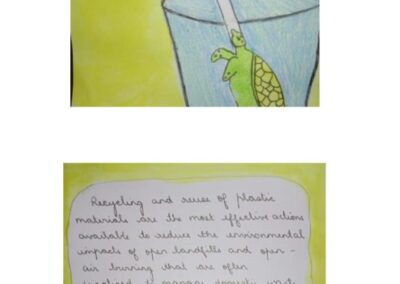 Recycling and reuse of plastic
materials are the most effective actions
available to reduce the environmental
impacts of open landfills and open-
air burning that are often
practiced to manage domestic waste